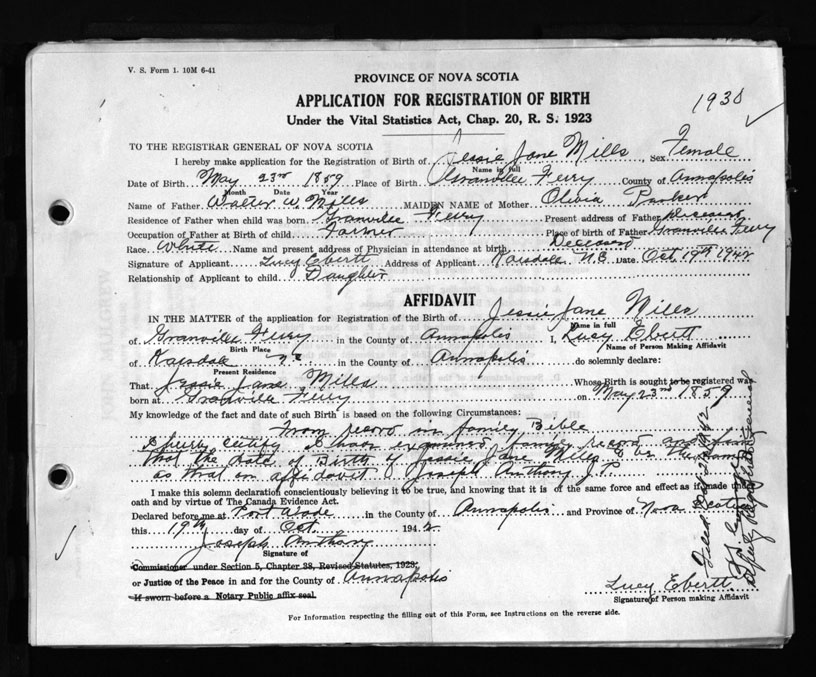 V. S. Form 1. 10M 6-41
PROVINCE OF NOVA SCOTIA
APPLICATION FOR REGISTRATION OF BIRTH
Under the Vital Statistics Act, Chap. 20, R. S. 1923
1930
TO THE REGISTRAR GENERAL OF NOVA SCOTIA
I hereby make application for the Registration of Birth of Jessie Jane Mills Sex Female
Name in full
Date of Birth May 23rd 1859 Place of Birth Granville Ferry County of Annapolis
Month Date Year
Name of Father Walter W. Mills MAIDEN NAME of Mother Olivia Parker
Residence of Father when child was born Granville Ferry Present address of Father Deceased
Occupation of Father at Birth of child Farmer Place of birth of Father Granville Ferry
Race White Name and present address of Physician in attendance at birth Deceased
Signature of Applicant Lucy Ebertt Address of Applicant Karsdale Date Oct 19th 1942
Relationship of Applicant to child Daughter
AFFIDAVIT
IN THE MATTER of the application for Registration of the Birth of Jessie Jane Mills
Name in full
of Granville Ferry in the County of Annapolis I, Lucy Ebertt
Birth Place Name of Person Making Affidavit
of Karsdale in the County of Annapolis do solemnly declare:
Present Residence
That Jessie Jane Mills Whose Birth is sought to be registered was
born at Granville Ferry on May 23rd 1859
My knowledge of the fact and date of such Birth is based on the following Circumstances:
From record in family Bible
I hereby certify I have examined family record and
that the date of Birth of Jessie Jane Mills to be the same
as that on affidavit Joseph Anthony J.P.
I make this solemn declaration conscientiously believing it to be true, and knowing that it is of the same force and effect as if made under
oath and by virtue of The Canada Evidence Act.
Declared before me at Port Wade in the County of Annapolis and Province of Nova Scotia
this 19th day of Oct. 1942
Joseph Anthony
Signature of
Commissioner under Section 5, Chapter 38, Revised Statutes, 1923;
or Justice of the Peace in and for the County of Annapolis
If sworn before a Notary Public affix seal.
Lucy Ebertt
Signature of Person making Affidavit
For Information respecting the filling out of this Form, see Instructions on the reverse side.
Filed 1942
Deputy Registrar General